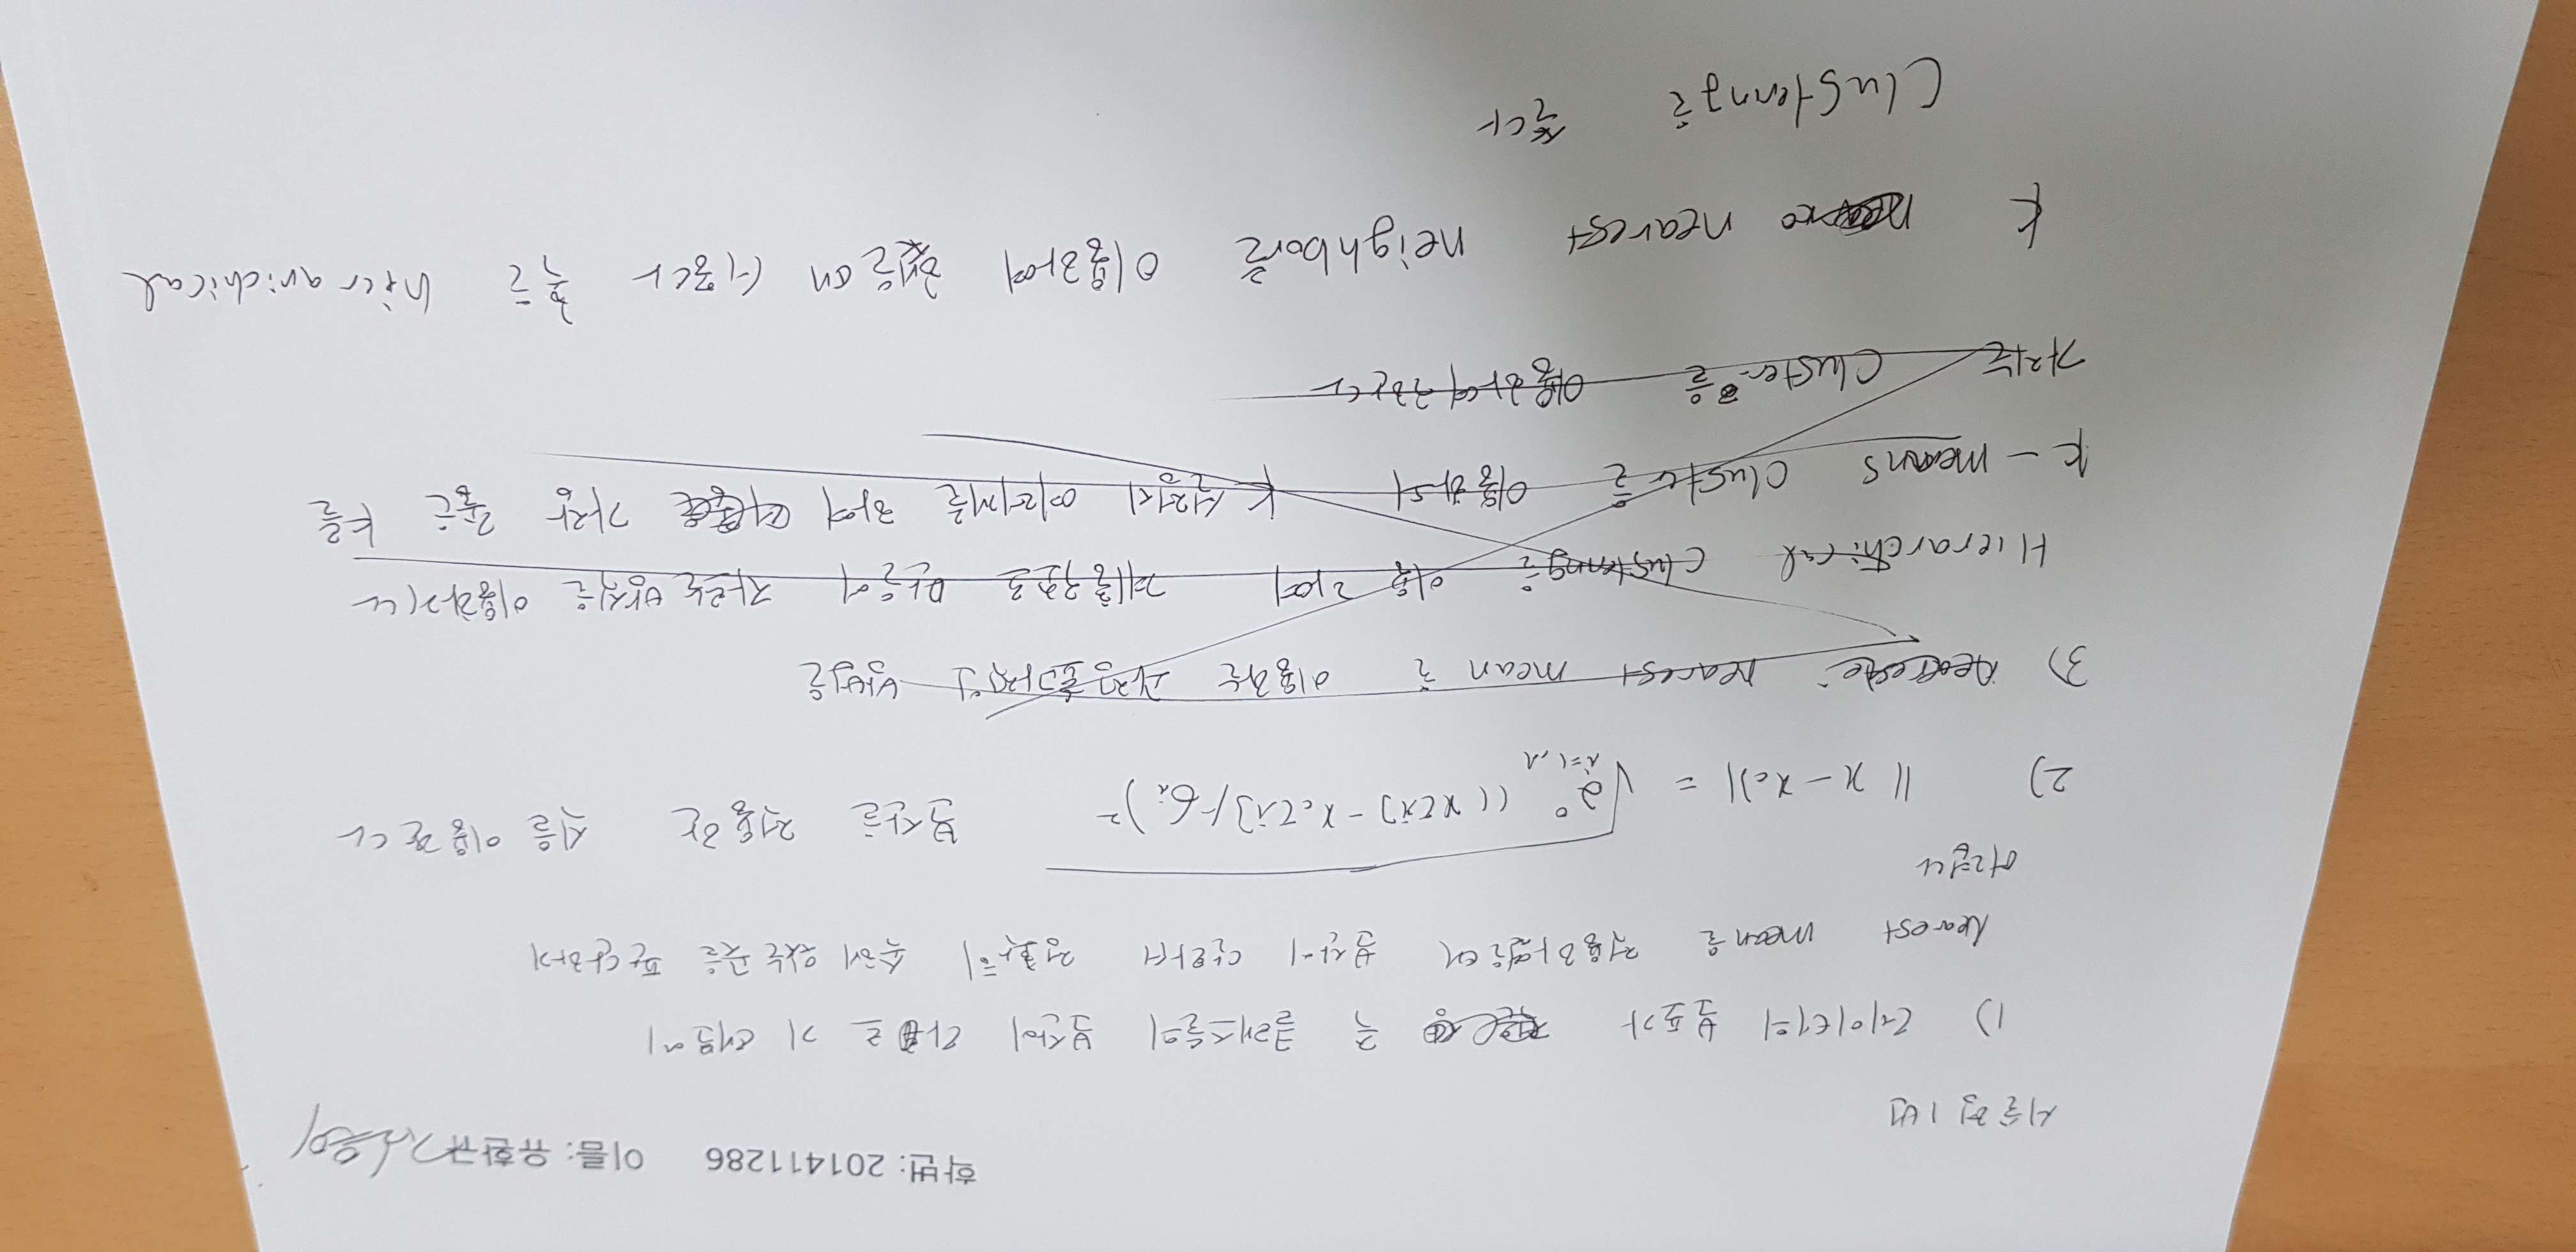 학번: 201411286 이름: 유환규
서술형 1번
1) 데이터의 분포가 즉 클래스들의 분산이 다르기 때문에
Nearest mean을 적용하였을때 분산이 안맞아서 정확히 속해 있는 곳을 판단하기
어렵다
2) || x - xc || = √ Σ i=1,2 (( x[i] - xc[i] ) / σi )² 분산을 적용한 식을 이용한다
3) nearest mean을 이용하는 가장 효과적인 방법은
Hierarchical Clustering을 이용하여 계층구조로 만들어 자르는 방식을 이용하거나
k-means Cluster를 이용하되 k 설정시 여러개를 하여 가장 좋은 k를
가지는 Cluster을 이용하여 구한다
k nearest neighbor을 이용하여 했을때 혹은 hierarichical
Clustering을 쓴다